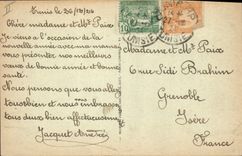 Tunis le 26/12/20
Chère madame et Mr Paix
Je viens a l'occasion de la
nouvelle année avec ma maman
vous présenter nos meilleurs
vœux de bonne année et bonne
santé.
Nous pensons que vous allez
tous bien et nous vous
tous deux bien affectueusement
Jacquet Andrée
Madame et Mr Paix
Rue Sidi Brahim
Grenoble
Isère
France